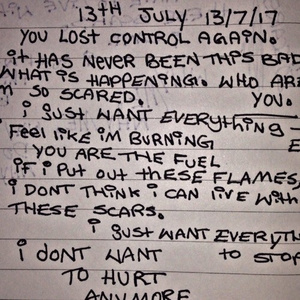 13TH JULY 13/7/17
YOU LOST CONTROL AGAIN.
iT HAS NEVER BEEN THiS BAD
WHAT iS HAPPENiNG. WHO ARE
M SO SCARED. YOU.
i JUST WANT EVERYTHiNG
i FEEL LiKE iM BURNiNG
YOU ARE THE FUEL
iF i PUT OUT THESE FLAMES,
i DONT THiNK i CAN LiVE WiTH
THESE SCARS.
i JUST WANT EVERYTH
i DONT WANT TO STOP
TO HURT
ANYMORE